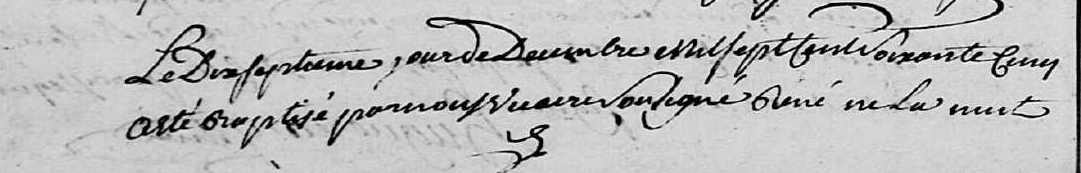 Le Dixseptieme jour de Decembre mil sept Cent soixante Cinq
a esté Baptisé par nous Vicaire soussigné René né La nuit